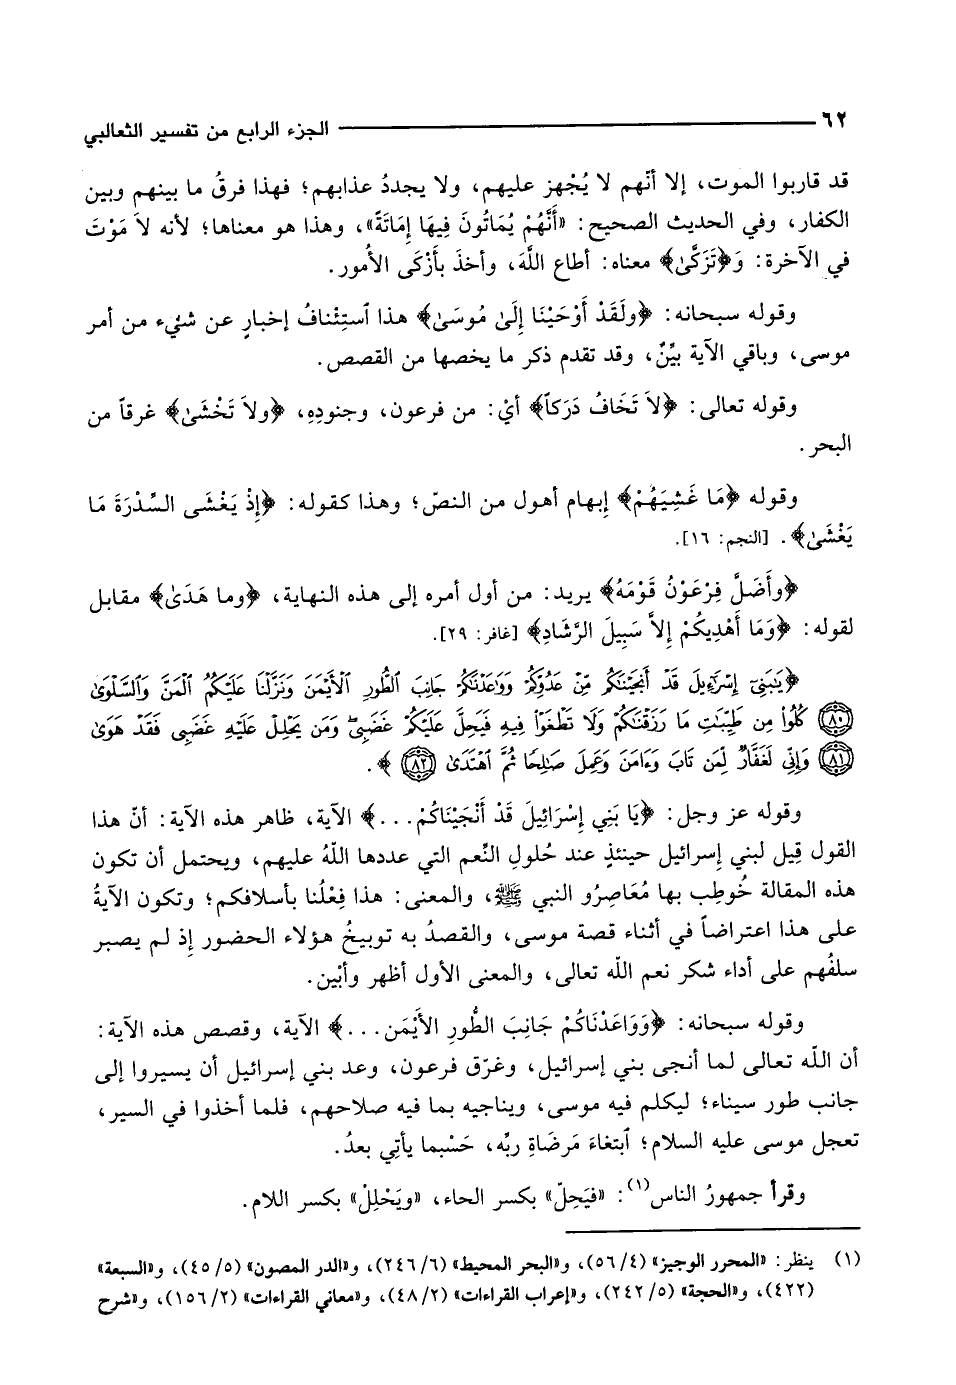 ٦٢ ــــــــ الجزء الرابع من تفسير الثعالبي
قد قاربوا الموت، إلا أنّهم لا يُجْهز عليهم، ولا يجددُ عذابهم؛ فهذا فرقُ ما بينهم وبين
الكفار، وفي الحديث الصحيح: «أَنَّهُمْ يُمَاتُونَ فِيهَا إِمَاتَةً»، وهذا هو معناها؛ لأنه لاَ مَوْتَ
في الآخرة: وَ﴿تَزَكَّىٰ﴾ معناه: أطاع اللَّهَ، وأخذَ بأَزْكَى الأُمور.
وقوله سبحانه: ﴿ولَقَدْ أَوْحَيْنَا إِلَىٰ مُوسَىٰ﴾ هذا ٱستِئْنافُ إخبارٍ عن شيْء من أمر
موسى، وباقي الآية بيِّنٌ، وقد تقدم ذكر ما يخصها من القصص.
وقوله تعالى: ﴿لاَ تَخَافُ دَرَكاً﴾ أيْ: من فرعون، وجنودِهِ، ﴿ولاَ تَخْشَىٰ﴾ غرقاً من
البحر.
وقوله ﴿مَا غَشِيَهُمْ﴾ إبهام أهول من النصّ؛ وهذا كقوله: ﴿إِذْ يَغْشَى السِّدْرَةَ مَا
يَغْشَىٰ﴾. [النجم: ١٦].
﴿وأَضَلَّ فِرْعَوْنُ قَوْمَهُ﴾ يريد: من أول أمره إلى هذه النهاية، ﴿وما هَدَىٰ﴾ مقابل
لقوله: ﴿وَمَا أَهْدِيكُمْ إِلاَّ سَبِيلَ الرَّشَادِ﴾ [غافر: ٢٩].
﴿يَٰبَنِىٓ إِسْرَٰٓءِيلَ قَدْ أَنجَيْنَٰكُم مِّنْ عَدُوِّكُمْ وَوَٰعَدْنَٰكُمْ جَانِبَ ٱلطُّورِ ٱلْأَيْمَنَ وَنَزَّلْنَا عَلَيْكُمُ ٱلْمَنَّ وَٱلسَّلْوَىٰ
﴿٨٠﴾ كُلُوا۟ مِن طَيِّبَٰتِ مَا رَزَقْنَٰكُمْ وَلَا تَطْغَوْا۟ فِيهِ فَيَحِلَّ عَلَيْكُمْ غَضَبِى ۖ وَمَن يَحْلِلْ عَلَيْهِ غَضَبِى فَقَدْ هَوَىٰ
﴿٨١﴾ وَإِنِّى لَغَفَّارٌ لِّمَن تَابَ وَءَامَنَ وَعَمِلَ صَٰلِحًا ثُمَّ ٱهْتَدَىٰ ﴿٨٢﴾ ﴾.
وقوله عز وجل: ﴿يَا بَنِي إسْرَائِيلَ قَدْ أَنْجَيْنَاكُمْ...﴾ الآية، ظاهر هذه الآية: أنّ هذا
القول قِيل لبني إسرائيل حينئذٍ عند حُلولِ النِّعم التي عددها اللّهُ عليهم، ويحتمل أن تكون
هذه المقالة خُوطِب بها مُعَاصِرُو النبي ﷺ، والمعنى: هذا فِعْلُنا بأسلافكم؛ وتكون الآيةُ
على هذا اعتراضاً في أثناء قصة موسى، والقصدُ به توبيخُ هؤلاء الحضور إذ لم يصبر
سلفُهم على أداء شكر نعم اللّه تعالى، والمعنى الأول أظهر وأبْين.
وقوله سبحانه: ﴿وَوَاعَدْنَاكُمْ جَانِبَ الطُّورِ الأَيْمَن...﴾ الآية، وقصص هذه الآية:
أن اللّه تعالى لما أنجى بني إسرائيل، وغرّق فرعون، وعد بني إسرائيل أن يسيروا إلى
جانب طور سيناء؛ ليكلم فيه موسى، ويناجيه بما فيه صلاحهم، فلما أخذوا في السير،
تعجل موسى عليه السلام؛ ٱبتغاءَ مَرضَاةِ ربِّه، حَسْبما يأتِي بعدُ.
وقرأ جمهورُ الناس(١): «فيَحِلّ» بكسر الحاء، «ويَحْلِلْ» بكسر اللام.
(١) ينظر: «المحرر الوجيز» (٤/ ٥٦)، و«البحر المحيط» (٦/ ٢٤٦)، و«الدر المصون» (٥/ ٤٥)، و«السبعة»
(٤٢٢)، و«الحجة» (٥/ ٢٤٢)، و«إعراب القراءات» (٢/ ٤٨)، و«معاني القراءات» (٢/ ١٥٦)، و«شرح